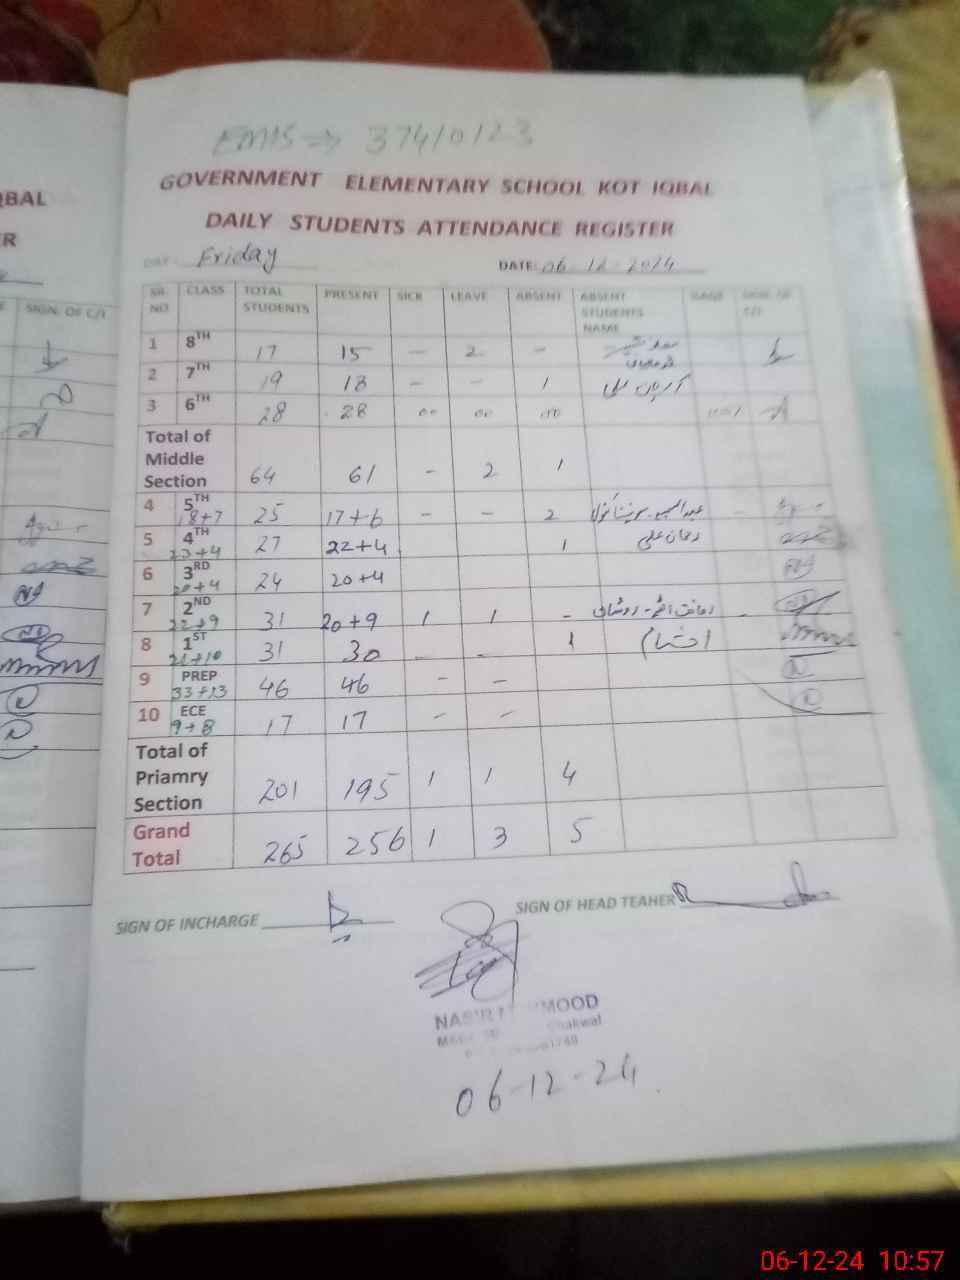 EMIS ⇒ 37410123
GOVERNMENT ELEMENTARY SCHOOL KOT IQBAL
DAILY STUDENTS ATTENDANCE REGISTER
DAY: Friday DATE: 06-12-2024
SR. NO CLASS TOTAL STUDENTS PRESENT SICK LEAVE ABSENT ABSENT STUDENTS NAME SIGN. OF C/I
1 8TH 17 15 - 2 -
2 7TH 19 18 - - 1
3 6TH 28 28 00 00 00
Total of Middle Section 64 61 - 2 1
4 5TH 18+7 25 17+6 - - 2
5 4TH 23+4 27 22+4 1
6 3RD 20+4 24 20+4
7 2ND 22+9 31 20+9 1 1 -
8 1ST 21+10 31 30 - - 1
9 PREP 33+13 46 46 - -
10 ECE 9+8 17 17 - -
Total of Priamry Section 201 195 1 1 4
Grand Total 265 256 1 3 5
SIGN OF INCHARGE SIGN OF HEAD TEAHER
MOOD
06-12-24
QBAL
R
SIGN. OF C/I
06-12-24 10:57